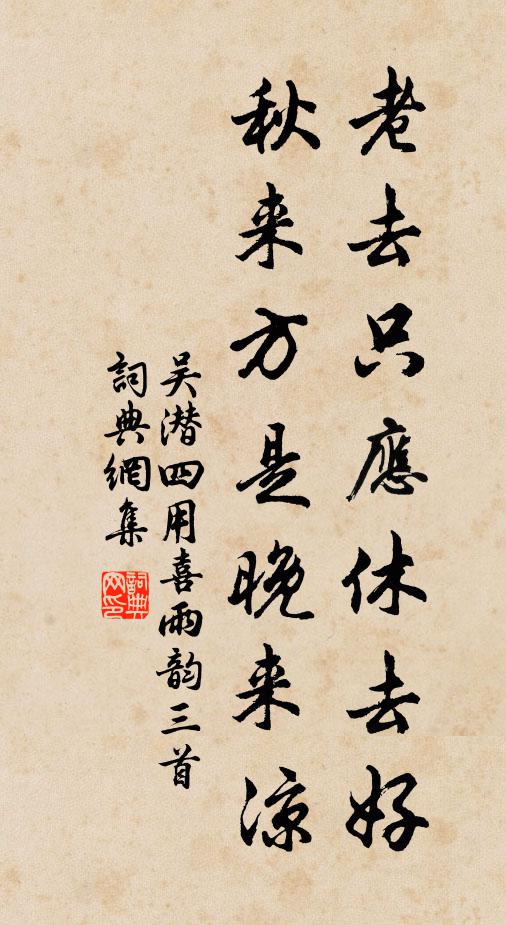 老去只應休去好
秋来方是晚来凉
吴潜四用喜雨韵三首
詞典網集
詞典网印